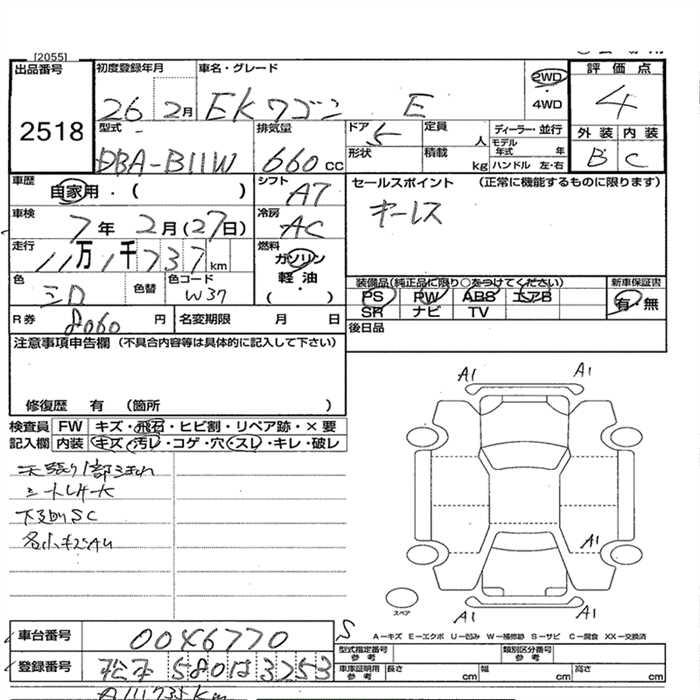 [2055]
出品番号
2518
初度登録年月
26 2月
車名・グレード
EKワゴン E
2WD
4WD
評価点
4
外装 内装
B C
型式
DBA-B11W
排気量
660 cc
ドア 5
定員 人
形状
積載 kg
ディーラー・並行
モデル年式 年
ハンドル 左・右
車歴
自家用・( )
シフト
A7
セールスポイント (正常に機能するものに限ります)
キーレス
車検
7年2月(27日)
冷房
AC
走行
11万1千737km
燃料
ガソリン
軽油
( )
色
シロ
色替
色コード
W37
装備品(純正品に限り○をつけてください)
PS PW ABS エアB
SR ナビ TV
新車保証書
有・無
R券 8060円
名変期限 月 日
後日品
注意事項申告欄 (不具合内容等は具体的に記入して下さい)
修復歴 有 (箇所 )
検査員記入欄
FW キズ・飛石・ヒビ割・リペア跡・×要
内装 キズ・汚レ・コゲ・穴・スレ・キレ・破レ
下廻りSC
各小キズAU
A1 A1
A1
A1 A1
スペア
A-キズ E-エクボ U-凹み W-補修跡 S-サビ C-腐食 XX-交換済
車台番号
0046770
S
登録番号
松本 580は3253
型式指定番号 参考
類別区分番号 参考
車庫証明用 参考
長さ cm 幅 cm 高さ cm
A111737Km